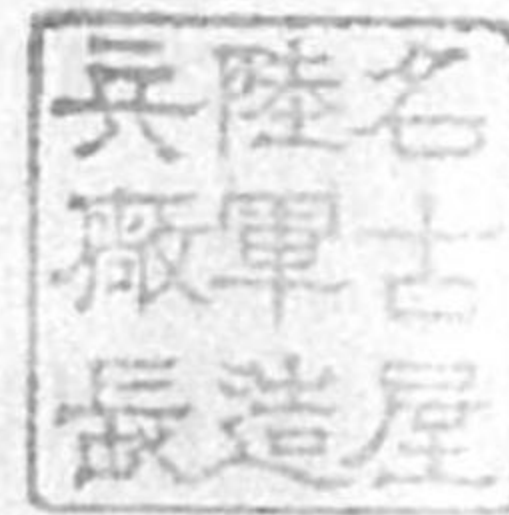 名古屋
陸軍造
兵廠長